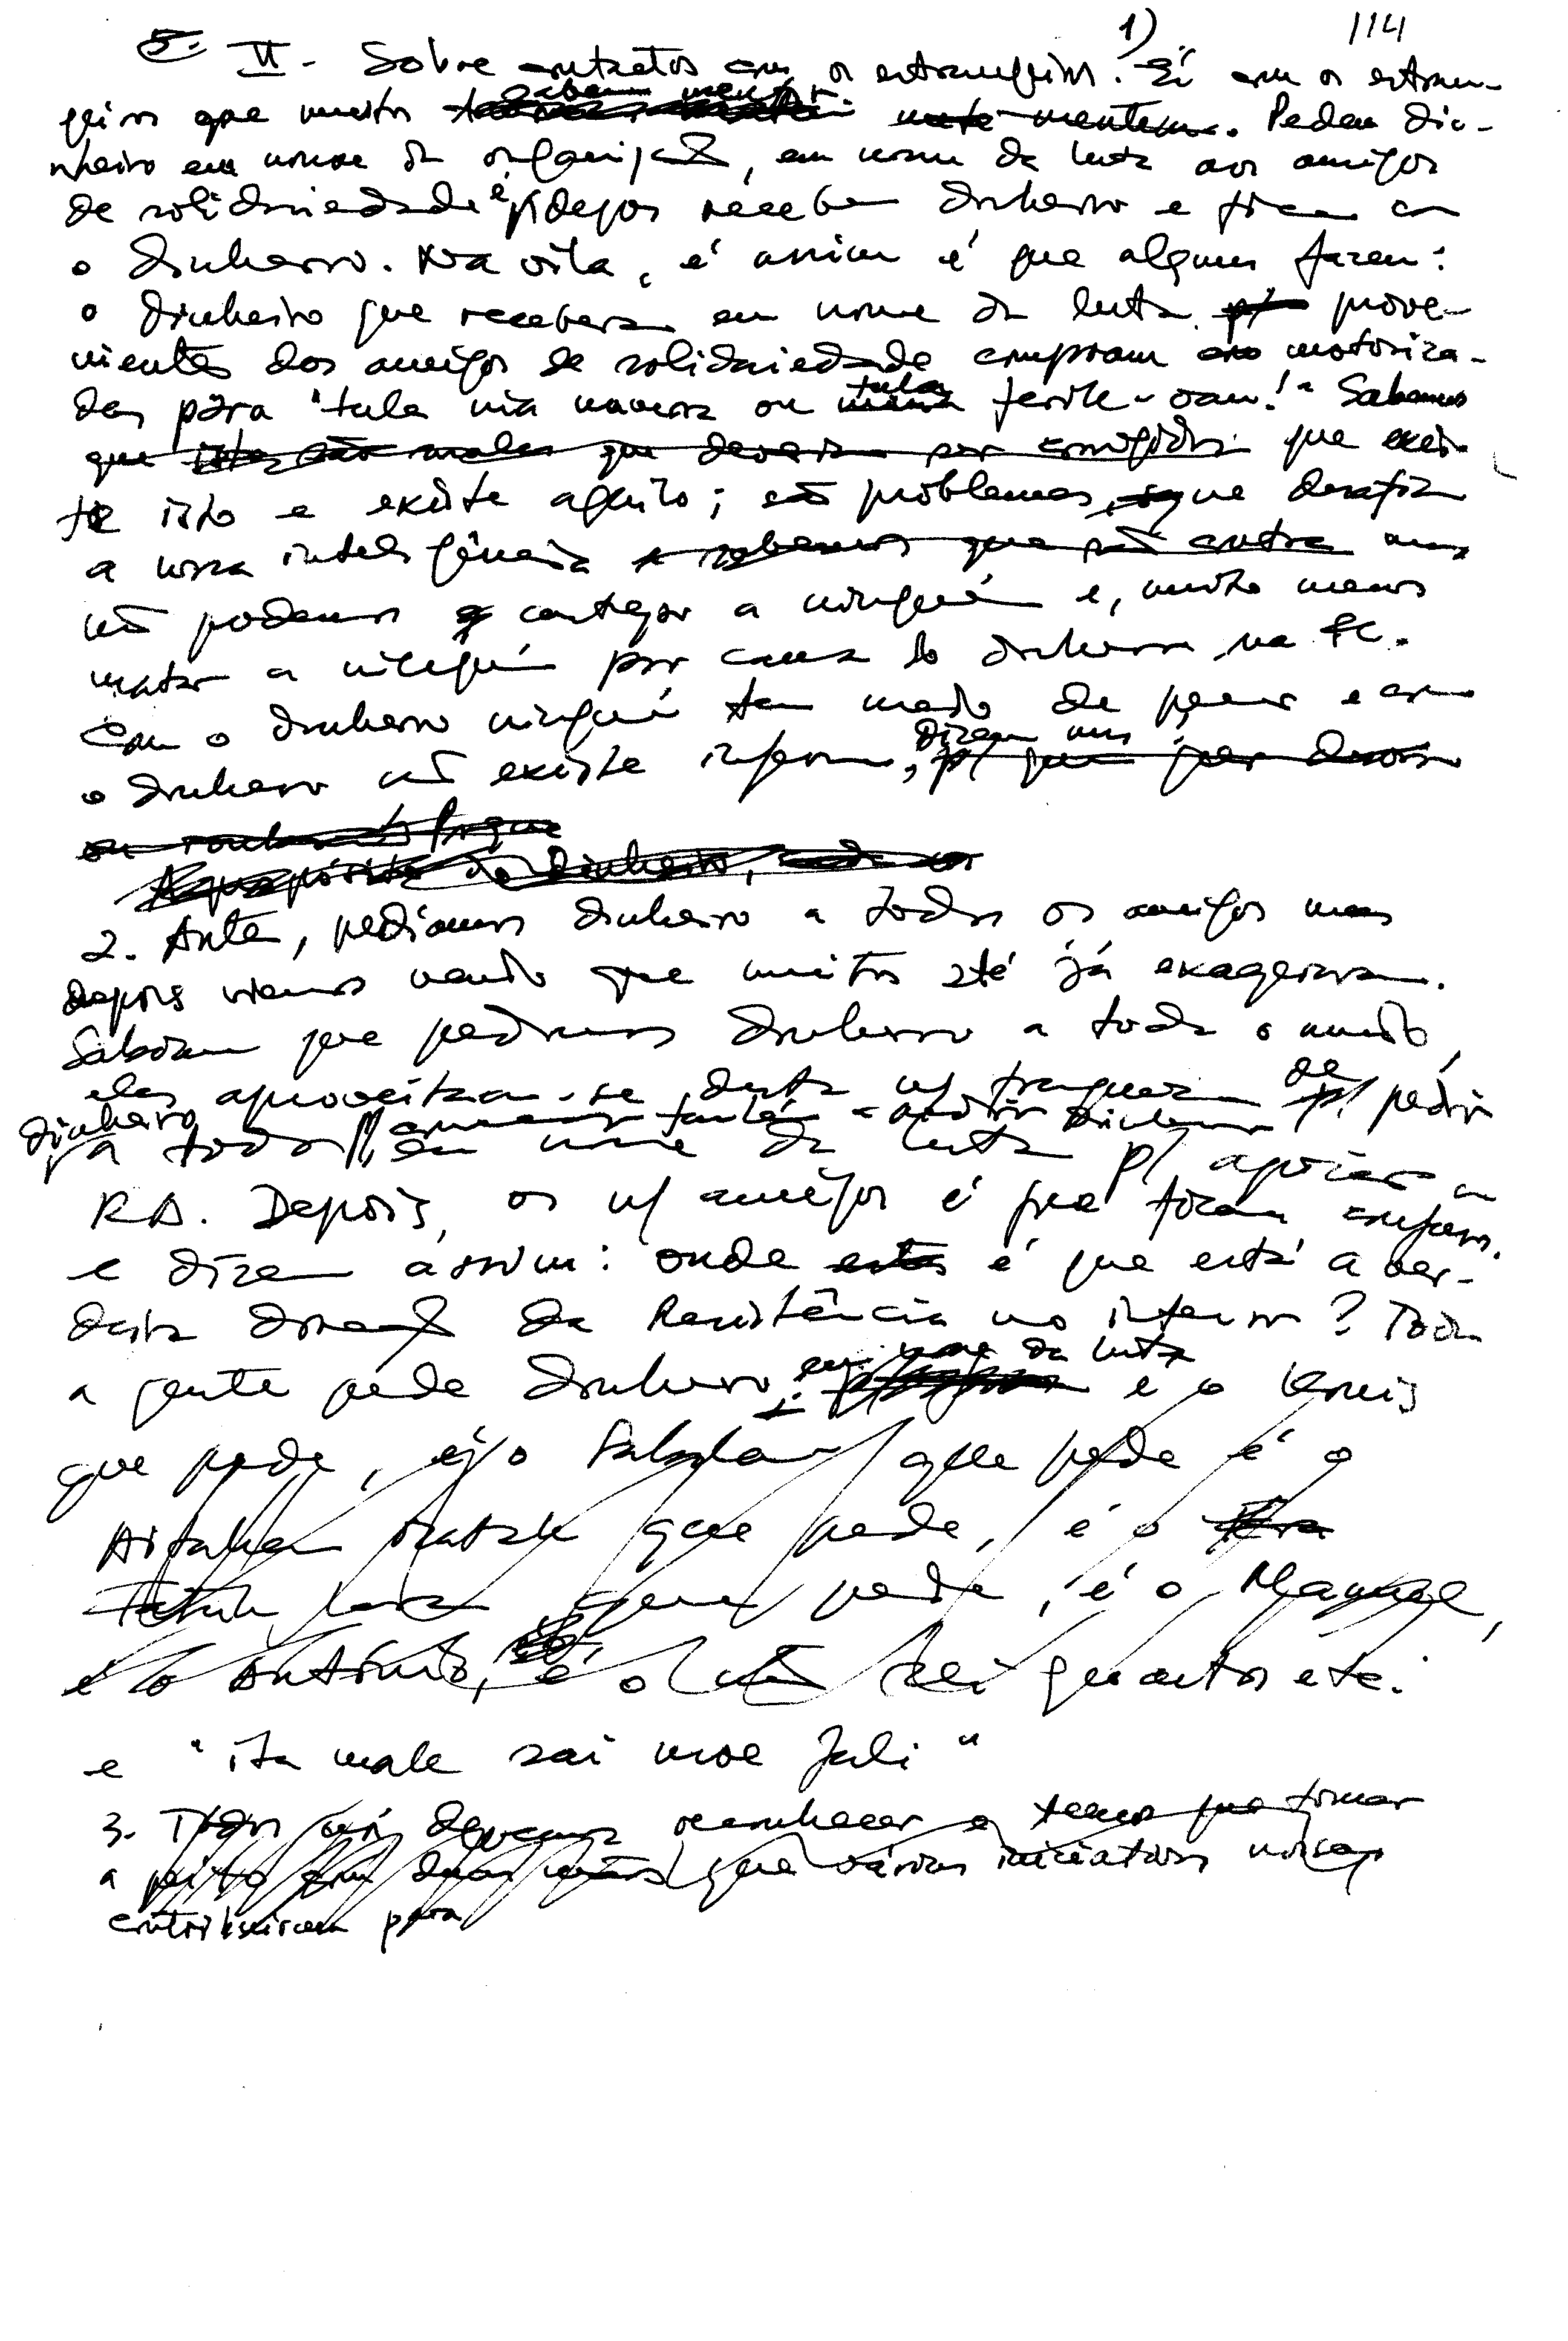 114
II - Sobre contactos com os estrangeiros. 1) É com os estran-
geiros que muitos sabem mentir. Pedem di-
nheiro em nome da organização, em nome da luta aos amigos
de solidariedade e depois recebem dinheiro e ficam com
o dinheiro. Na vila, é assim é que alguns fazem:
o dinheiro que receberam em nome da luta prove-
nientes dos amigos de solidariedade compram motoriza-
das para "tula nia naran ou tula ferik-oan!" Sabemos
que exis-
te isto e existe aquilo; são problemas que desafiam
a nossa inteligência mas
não podemos castigar a ninguém e, muito menos
matar a ninguém por causa do dinheiro na FC.
Com o dinheiro ninguém tem medo de pecar e com
o dinheiro não existe inferno, dizem uns
2. Antes, pedíamos dinheiro a todos os amigos mas
depois viemos vendo que muitos até já exageravam.
Sabiam que pedimos dinheiro a todo o mundo,
eles aproveitam-se desta n/ franqueza de pedir
dinheiro a todos, em nome da luta p/ apoiar a
RA. Depois, os n/ amigos é que ficam confusos
e dizem assim: onde é que está a ver-
dadeira direcção da Resistência no interior? Toda
a gente pede dinheiro em nome da luta é o Konis
que pede, é o Sabalae que pede é o
que pede, é o
que pede, é o
é o António, é o não sei quantos etc.
e "ita male sai moe fali"
3. Todos nós devemos reconhecer e temos que tomar
a peito que várias iniciativas nossas
contribuiram para